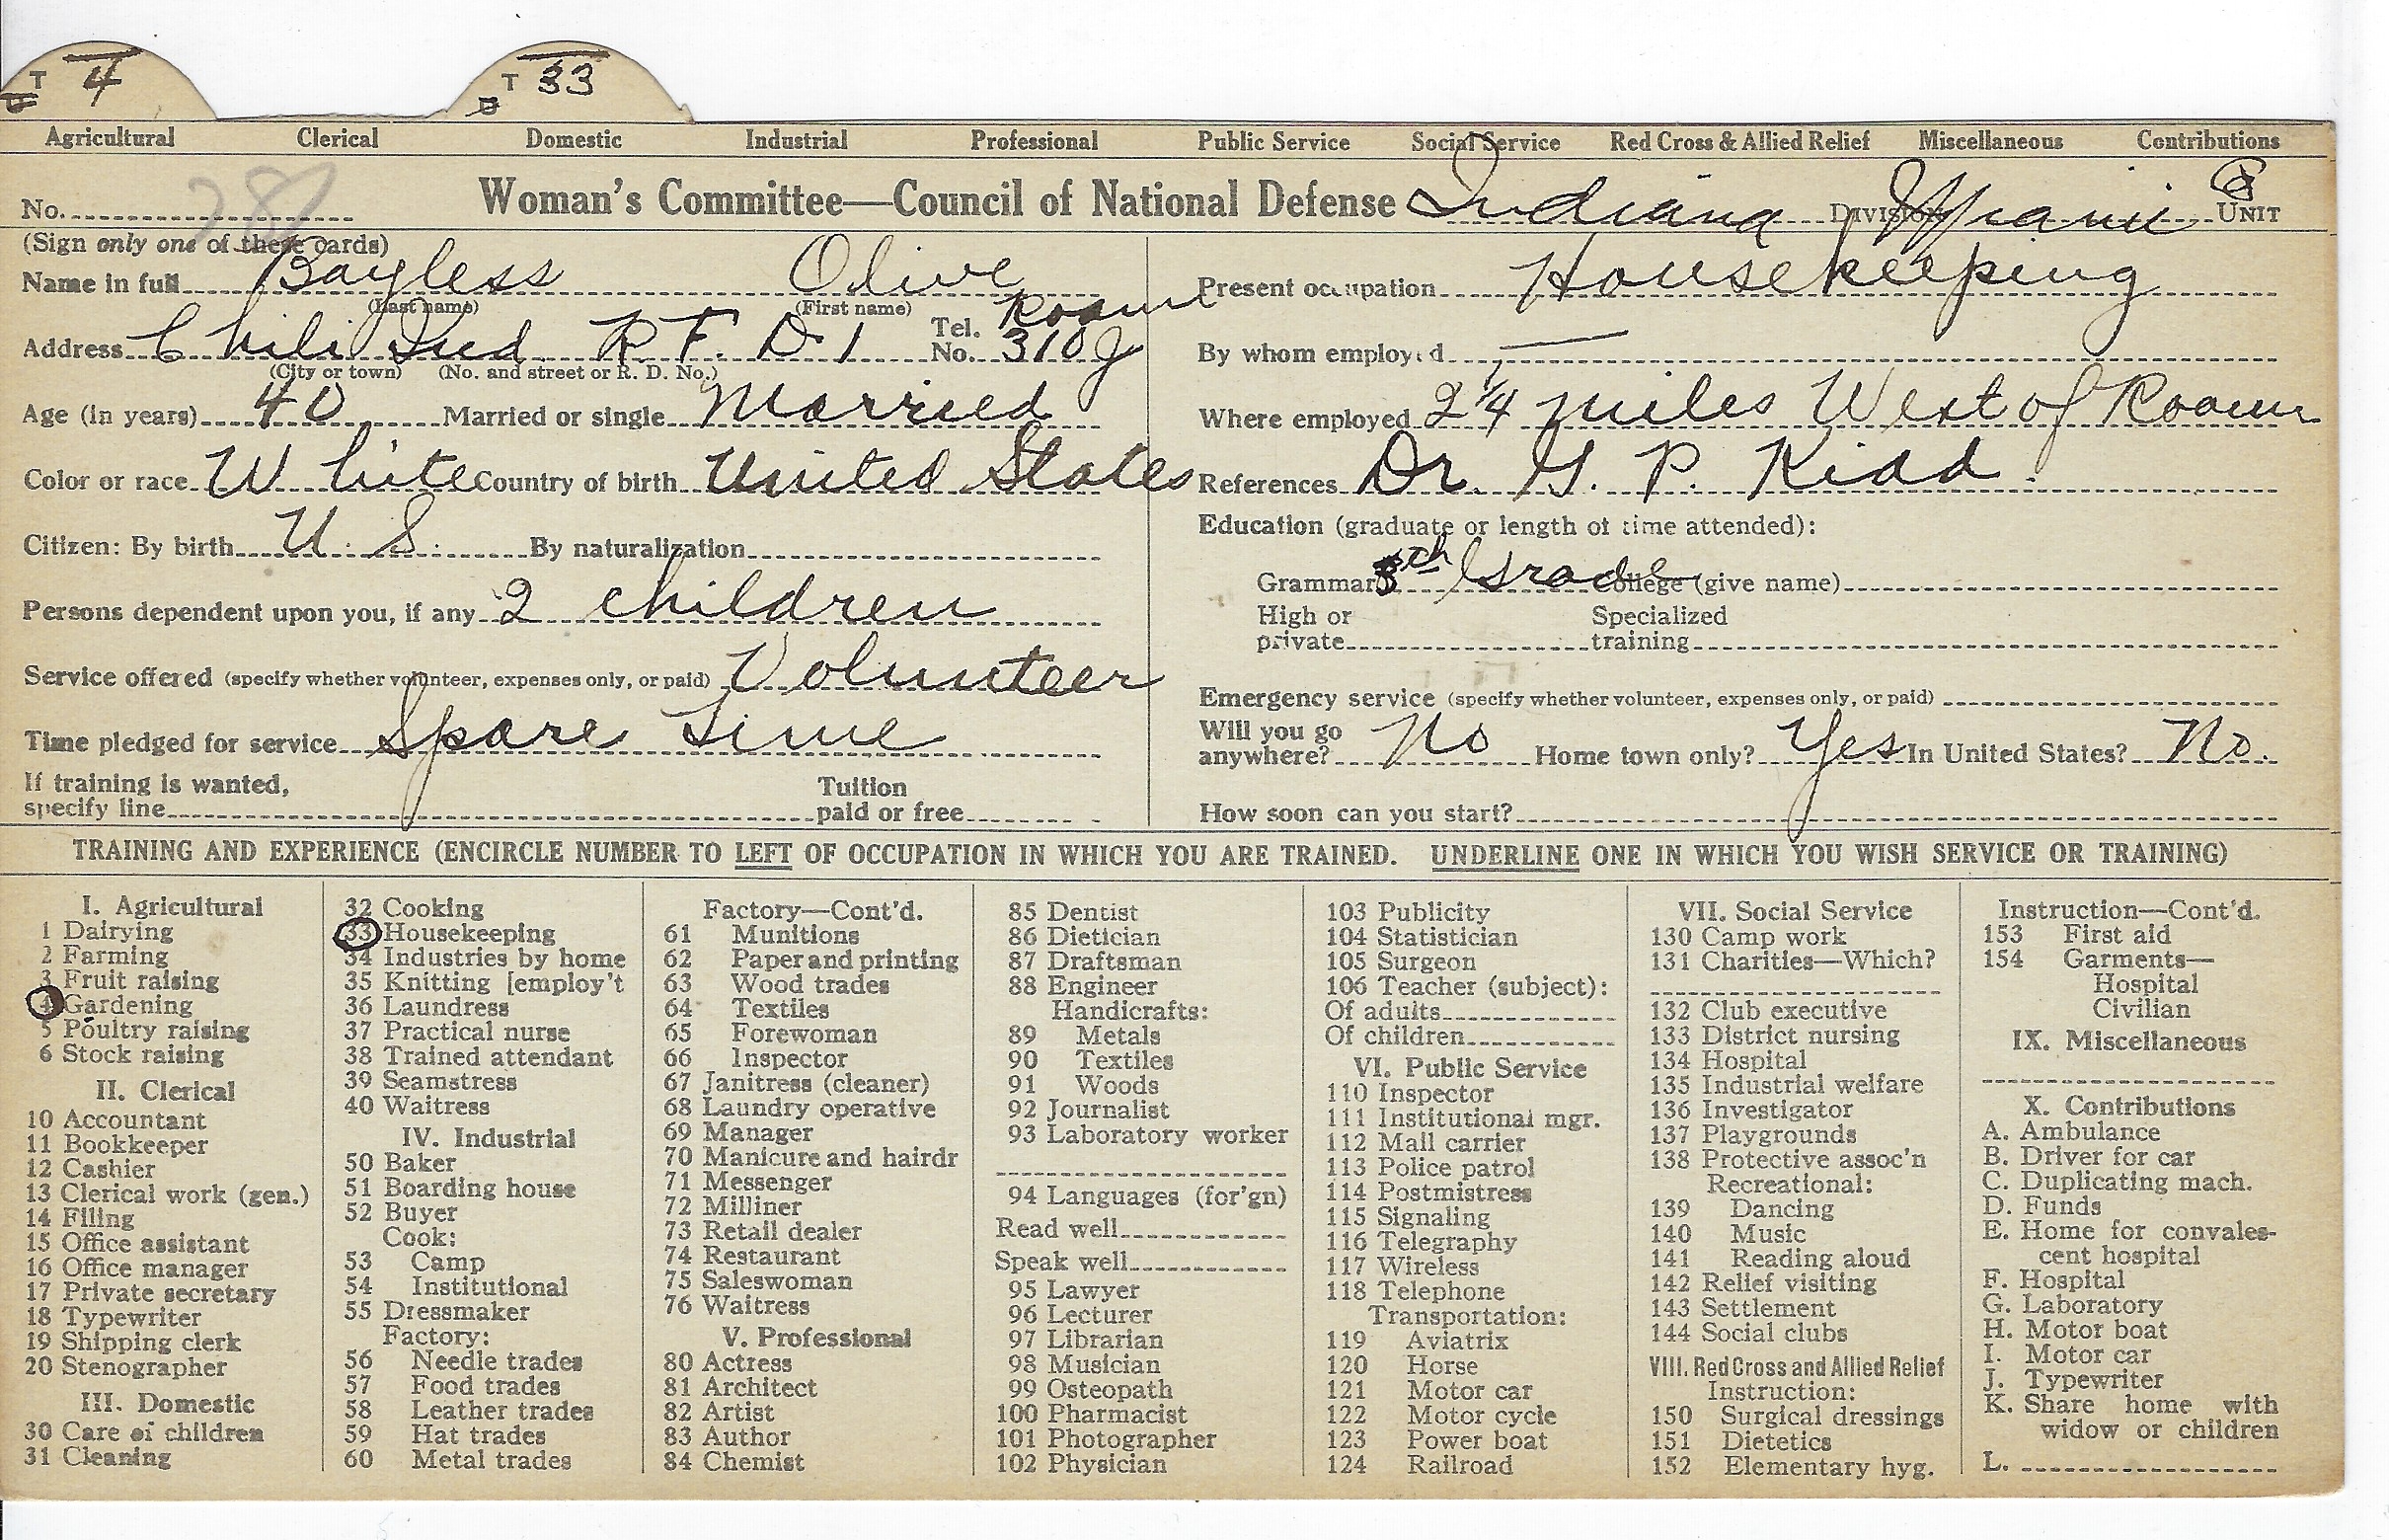 T 4 T 33
Agricultural Clerical Domestic Industrial Professional Public Service Social Service Red Cross & Allied Relief Miscellaneous Contributions
No. 
Woman's Committee—Council of National Defense Indiana DIVISION Miami UNIT
(Sign only one of these cards)
Name in full Bayless Olive
(Last name) (First name)
Address Chili Ind R. F. D. 1 Tel. No. Roann 310 J
(City or town) (No. and street or R. D. No.)
Age (in years) 40 Married or single Married
Color or race White Country of birth United States
Citizen: By birth U. S. By naturalization
Persons dependent upon you, if any 2 children
Service offered (specify whether volunteer, expenses only, or paid) Volunteer
Time pledged for service Spare Time
If training is wanted, specify line Tuition paid or free
Present occupation Housekeeping
By whom employed —
Where employed 2 1/4 miles West of Roann
References Dr. G. P. Kidd
Education (graduate or length of time attended):
Grammar 8th Grade College (give name)
High or private Specialized training
Emergency service (specify whether volunteer, expenses only, or paid)
Will you go anywhere? No Home town only? Yes In United States? No.
How soon can you start?
TRAINING AND EXPERIENCE (ENCIRCLE NUMBER TO LEFT OF OCCUPATION IN WHICH YOU ARE TRAINED. UNDERLINE ONE IN WHICH YOU WISH SERVICE OR TRAINING)
I. Agricultural
1 Dairying
2 Farming
3 Fruit raising
4 Gardening
5 Poultry raising
6 Stock raising
II. Clerical
10 Accountant
11 Bookkeeper
12 Cashier
13 Clerical work (gen.)
14 Filing
15 Office assistant
16 Office manager
17 Private secretary
18 Typewriter
19 Shipping clerk
20 Stenographer
III. Domestic
30 Care of children
31 Cleaning
32 Cooking
33 Housekeeping
34 Industries by home
35 Knitting [employ't
36 Laundress
37 Practical nurse
38 Trained attendant
39 Seamstress
40 Waitress
IV. Industrial
50 Baker
51 Boarding house
52 Buyer
Cook:
53 Camp
54 Institutional
55 Dressmaker
Factory:
56 Needle trades
57 Food trades
58 Leather trades
59 Hat trades
60 Metal trades
Factory—Cont'd.
61 Munitions
62 Paper and printing
63 Wood trades
64 Textiles
65 Forewoman
66 Inspector
67 Janitress (cleaner)
68 Laundry operative
69 Manager
70 Manicure and hairdr
71 Messenger
72 Milliner
73 Retail dealer
74 Restaurant
75 Saleswoman
76 Waitress
V. Professional
80 Actress
81 Architect
82 Artist
83 Author
84 Chemist
85 Dentist
86 Dietician
87 Draftsman
88 Engineer
Handicrafts:
89 Metals
90 Textiles
91 Woods
92 Journalist
93 Laboratory worker
94 Languages (for'gn)
Read well
Speak well
95 Lawyer
96 Lecturer
97 Librarian
98 Musician
99 Osteopath
100 Pharmacist
101 Photographer
102 Physician
103 Publicity
104 Statistician
105 Surgeon
106 Teacher (subject):
Of adults
Of children
VI. Public Service
110 Inspector
111 Institutional mgr.
112 Mail carrier
113 Police patrol
114 Postmistress
115 Signaling
116 Telegraphy
117 Wireless
118 Telephone
Transportation:
119 Aviatrix
120 Horse
121 Motor car
122 Motor cycle
123 Power boat
124 Railroad
VII. Social Service
130 Camp work
131 Charities—Which?
132 Club executive
133 District nursing
134 Hospital
135 Industrial welfare
136 Investigator
137 Playgrounds
138 Protective assoc'n
Recreational:
139 Dancing
140 Music
141 Reading aloud
142 Relief visiting
143 Settlement
144 Social clubs
VIII. Red Cross and Allied Relief
Instruction:
150 Surgical dressings
151 Dietetics
152 Elementary hyg.
Instruction—Cont'd.
153 First aid
154 Garments—
Hospital
Civilian
IX. Miscellaneous
X. Contributions
A. Ambulance
B. Driver for car
C. Duplicating mach.
D. Funds
E. Home for convales-
cent hospital
F. Hospital
G. Laboratory
H. Motor boat
I. Motor car
J. Typewriter
K. Share home with
widow or children
L.